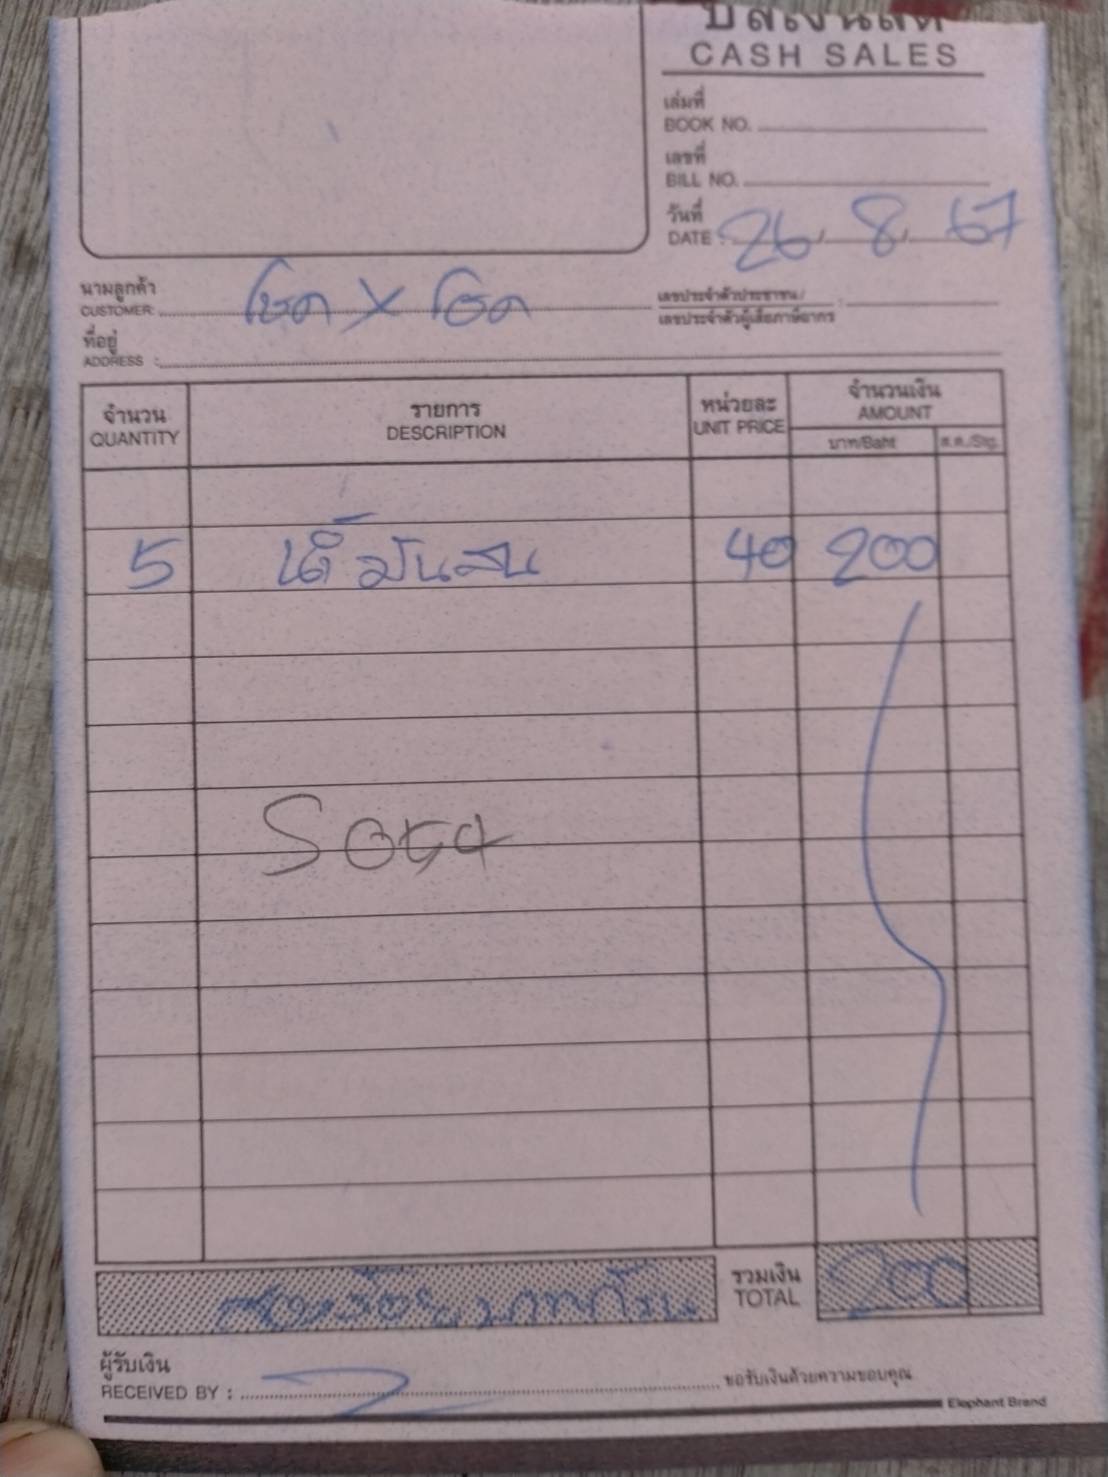 บิลเงินสด
CASH SALES
เล่มที่
BOOK NO.
เลขที่
BILL NO.
วันที่
DATE : 26/ 8/ 67
นามลูกค้า
CUSTOMER: โชค X โชค
เลขประจำตัวประชาชน/ :
เลขประจำตัวผู้เสียภาษีอากร
ที่อยู่
ADDRESS :
จำนวน รายการ หน่วยละ จำนวนเงิน
QUANTITY DESCRIPTION UNIT PRICE AMOUNT
บาท/Baht ส.ต./Stg.
5 40 200
รวมเงิน
TOTAL 200
สองร้อยบาทถ้วน
ผู้รับเงิน
RECEIVED BY : ขอรับเงินด้วยความขอบคุณ
Elephant Brand